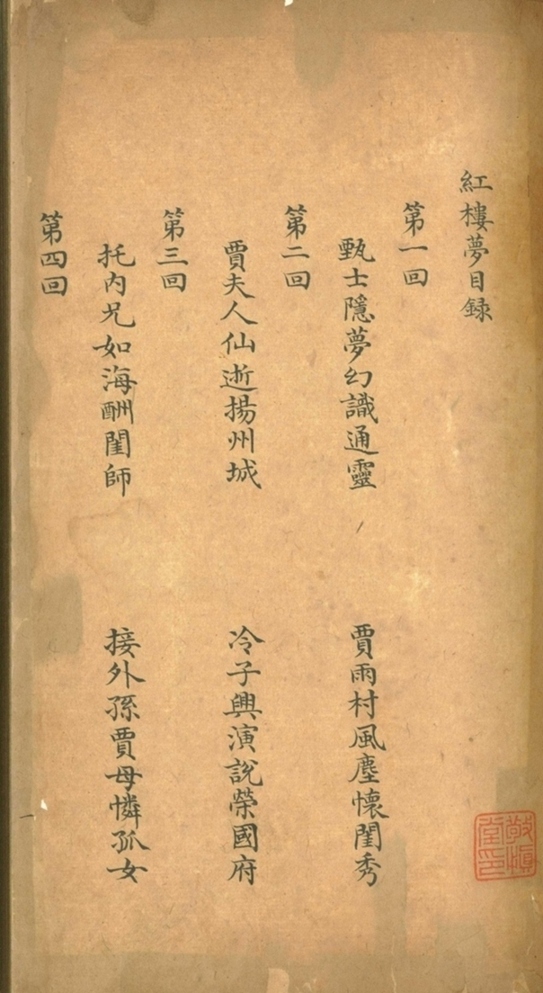 紅樓夢目録
第一回
甄士隱夢幻識通靈 賈雨村風塵懷閨秀
第二回
賈夫人仙逝揚州城 冷子興演說榮國府
第三回
托内兄如海酬閨師 接外孫賈母憐孤女
第四回
敬慎堂印